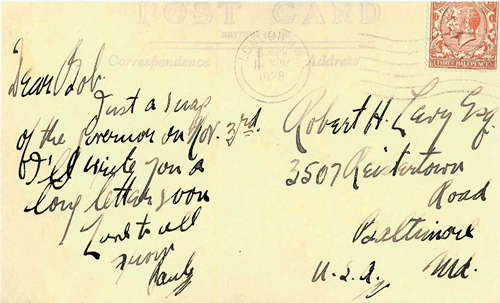 POST CARD
Correspondence
Address
LONDON
1928
THREE HALFPENCE
Dear Bob.
Just a snap
of the governor on Nov. 3rd.
I'll write you a
long letter soon
Love to all
from
Robert H. Levy Esq.
3507 Reisterstown
Road
Baltimore
U.S.A. Md.